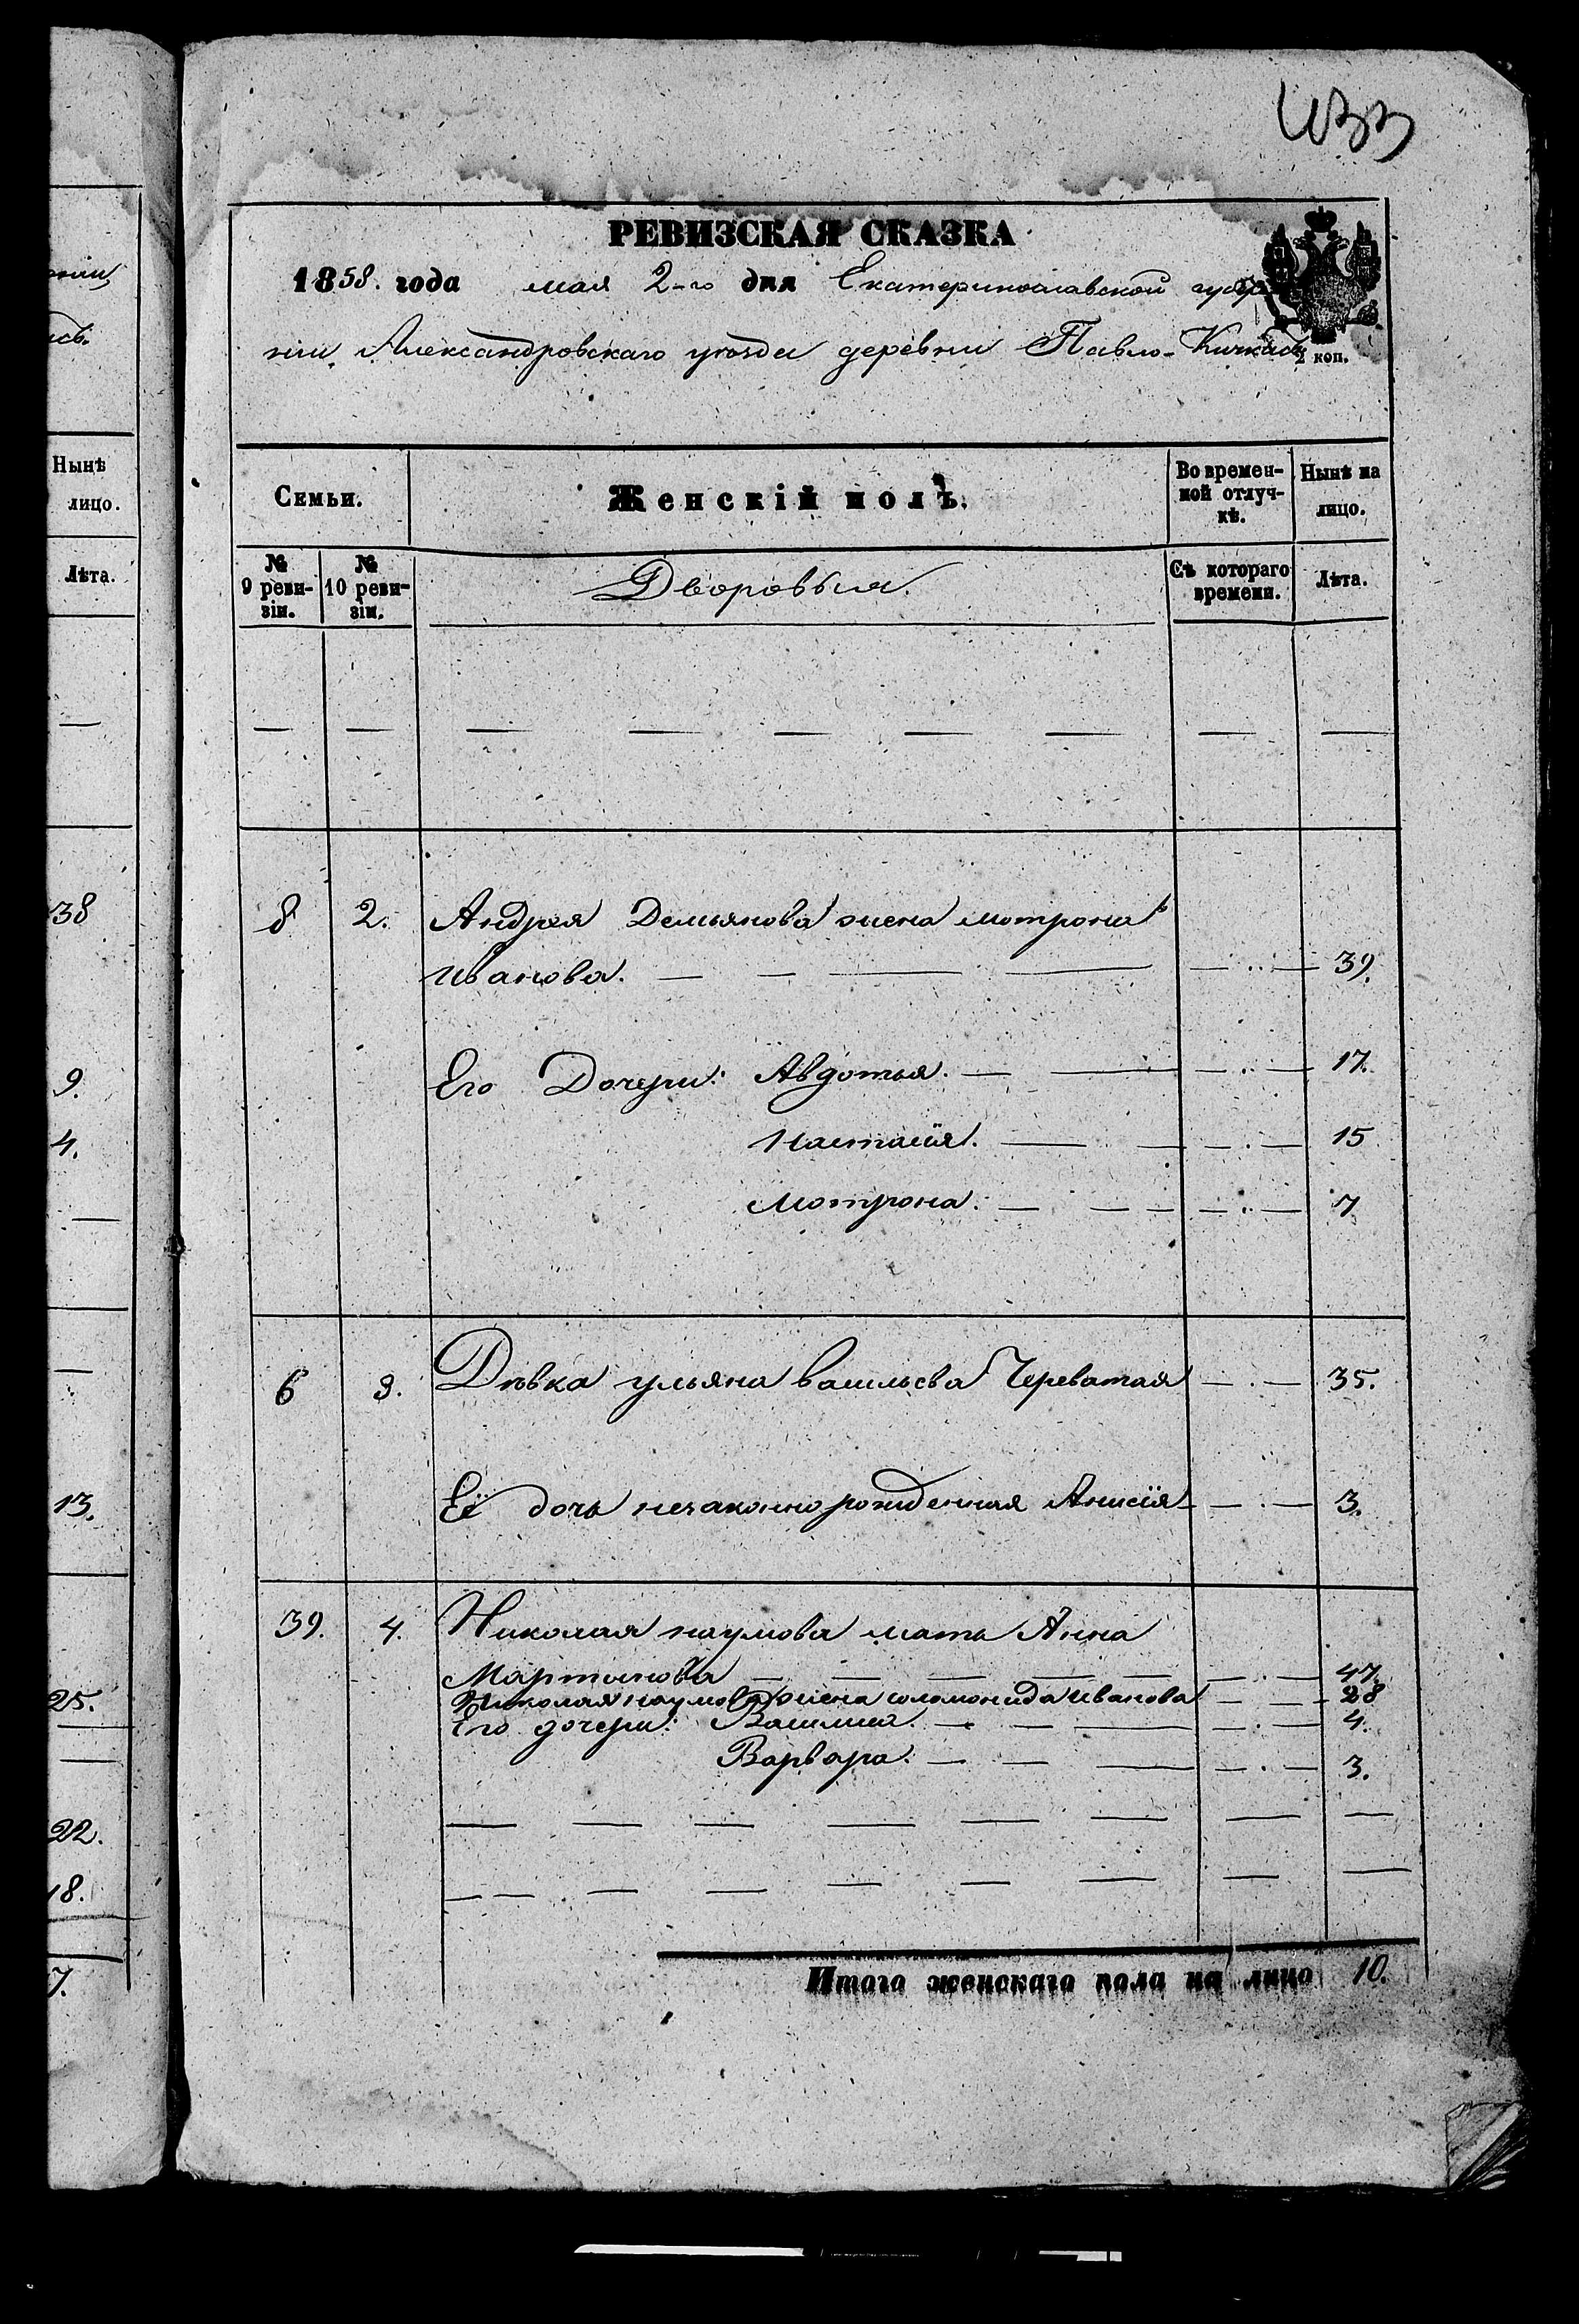 433
РЕВИЗСКАЯ СКАЗКА
1858. года мая 2-го дня Екатеринославской губер
нии Александровскаго уѣзда деревни Павло-Кичкасъ
2 коп.
Нынѣ
лицо.
Лѣта.
Семьи.
Женскій полъ.
Во времен-
ной отлуч-
кѣ.
Нынѣ на
лицо.
№
9 реви-
зіи.
№
10 реви-
зіи.
Дворовыя.
Съ котораго
времени.
Лѣта.
38
9.
4.
13.
25.
22.
18.
7.
8 2. Андрея Демьянова жена Мотрона
Иванова. 39.
Его Дочери: Авдотья. 17.
Настасія. 15
Мотрона. 7
6 3. Дѣвка Ульяна Васильева Череватая 35.
Её дочь незаконнорожденная Анисія 3.
39. 4. Николая Наумова мать Анна
Мартынова 47.
Николая Наумова жена Соломонида Иванова 28
Его дочери: Василиса. 4.
Варвара. 3.
Итого женскаго пола на лицо 10.